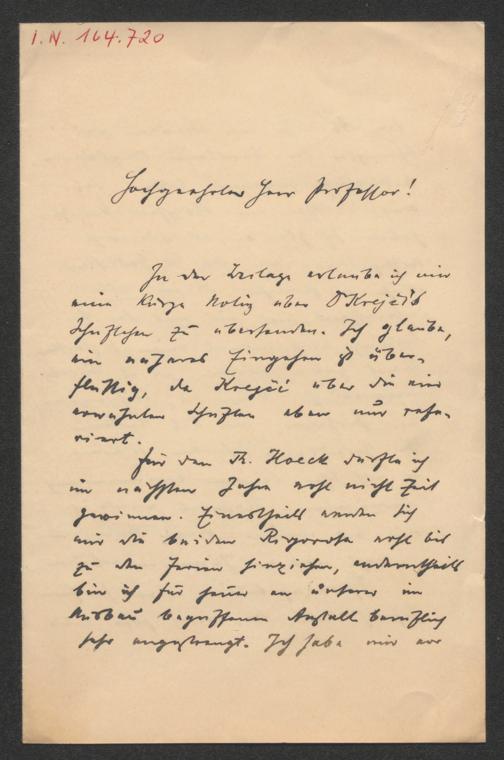 I.N. 164.720
Hochgeehrter Herr Professor!
In der Beilage erlaube ich mir
eine kurze Notiz über Krejčís
Schriftchen zu übersenden. Ich glaube,
ein näheres Eingehen ist über-
flüssig, da Krejčí über die vier
erwähnten Schriften eben nur refe-
riert.
Für den Th. Hoeck dürfte ich
im nächsten Jahre erst recht Zeit
gewinnen. Einestheils werden sich
mir die beiden Rigorosa erst bis
zu den Ferien hinziehen, anderntheils
bin ich für heuer an unserer im
Ausbau begriffenen Anstalt beruflich
sehr angestrengt. Ich habe mir